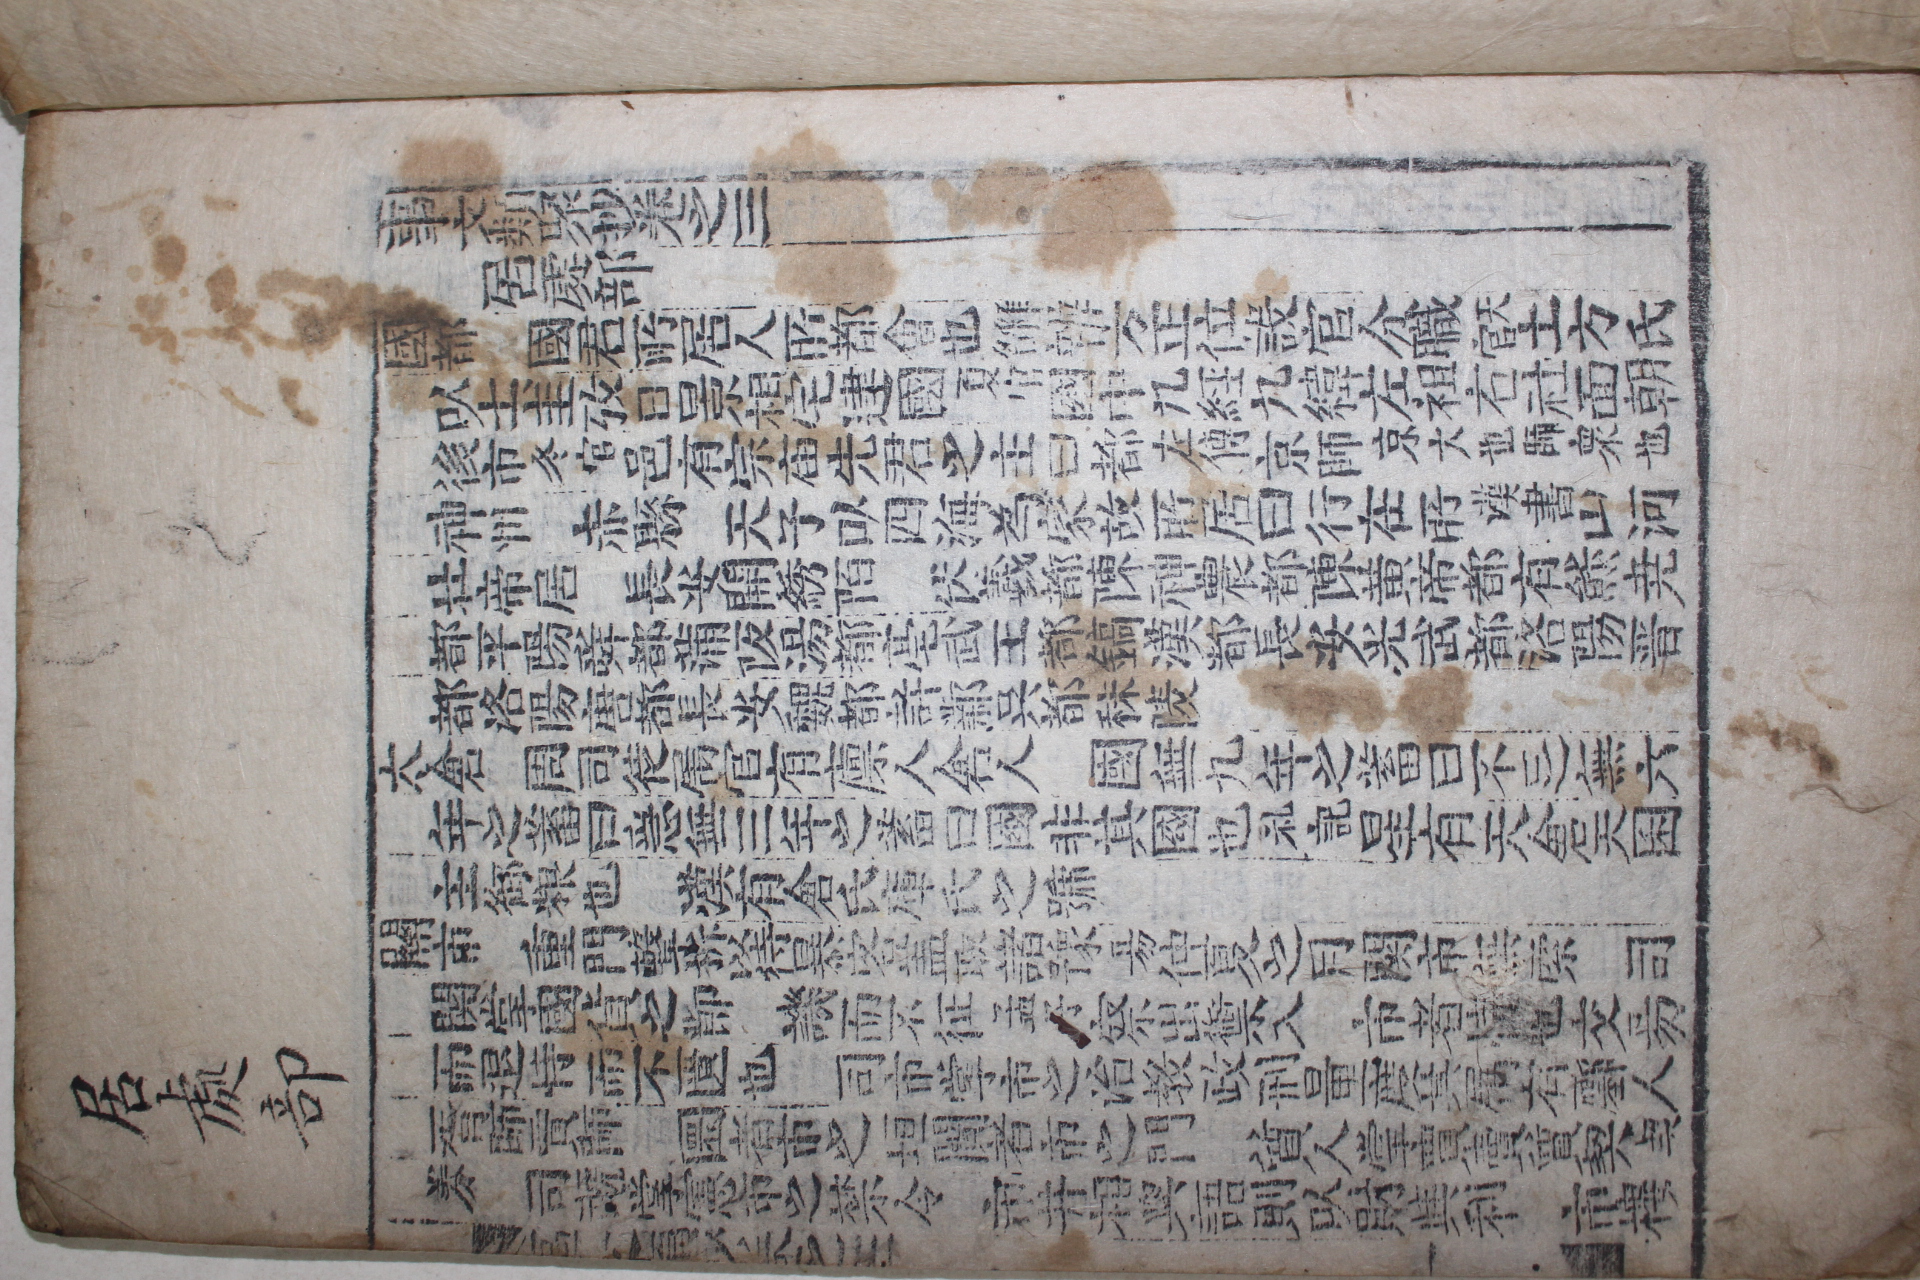 居處部
事文類聚抄卷之三
居處部
國都 國君所居人所都會也 惟辨方正位設官分職 天官 土方氏
以土圭致日景相宅建國 夏官 國中九經九緯左祖右社面朝
後市 冬官 邑有宗庙先君之主曰都 左傳 京師 京大也師衆也
神州 赤縣 天子以四海為家故所居曰行在所 漢書 山河
壯帝居 長安開綉陌 伏羲都陳神農都陳黃帝都有熊尭
都平陽舜都蒲阪湯都亳武王都鎬漢都長安光武都洛陽晋
都洛陽唐都長安魏都許鄴吳都秣陵
六倉 周司徒属官有廪人倉人 國無九年之蓄曰不足無六
年之蓄曰急無三年之蓄曰國非其國也 礼記 星有天倉天囷
主御粮也 漢有倉氏庫氏之號
關市 重門擊柝以待暴客盖取諸豫 易 仲夏之月関市無索 司
関掌國貨之節 譏而不征 孟子 察出禦入 市者恃也交易
而退恃而不匱也 司市掌市之治教政刑量度其属有胥人
胥師賈師 闤者市之垣闠者市之門 質人掌賣儥
券 司虣掌憲市之禁令 市井相與語則以財與利 市樓